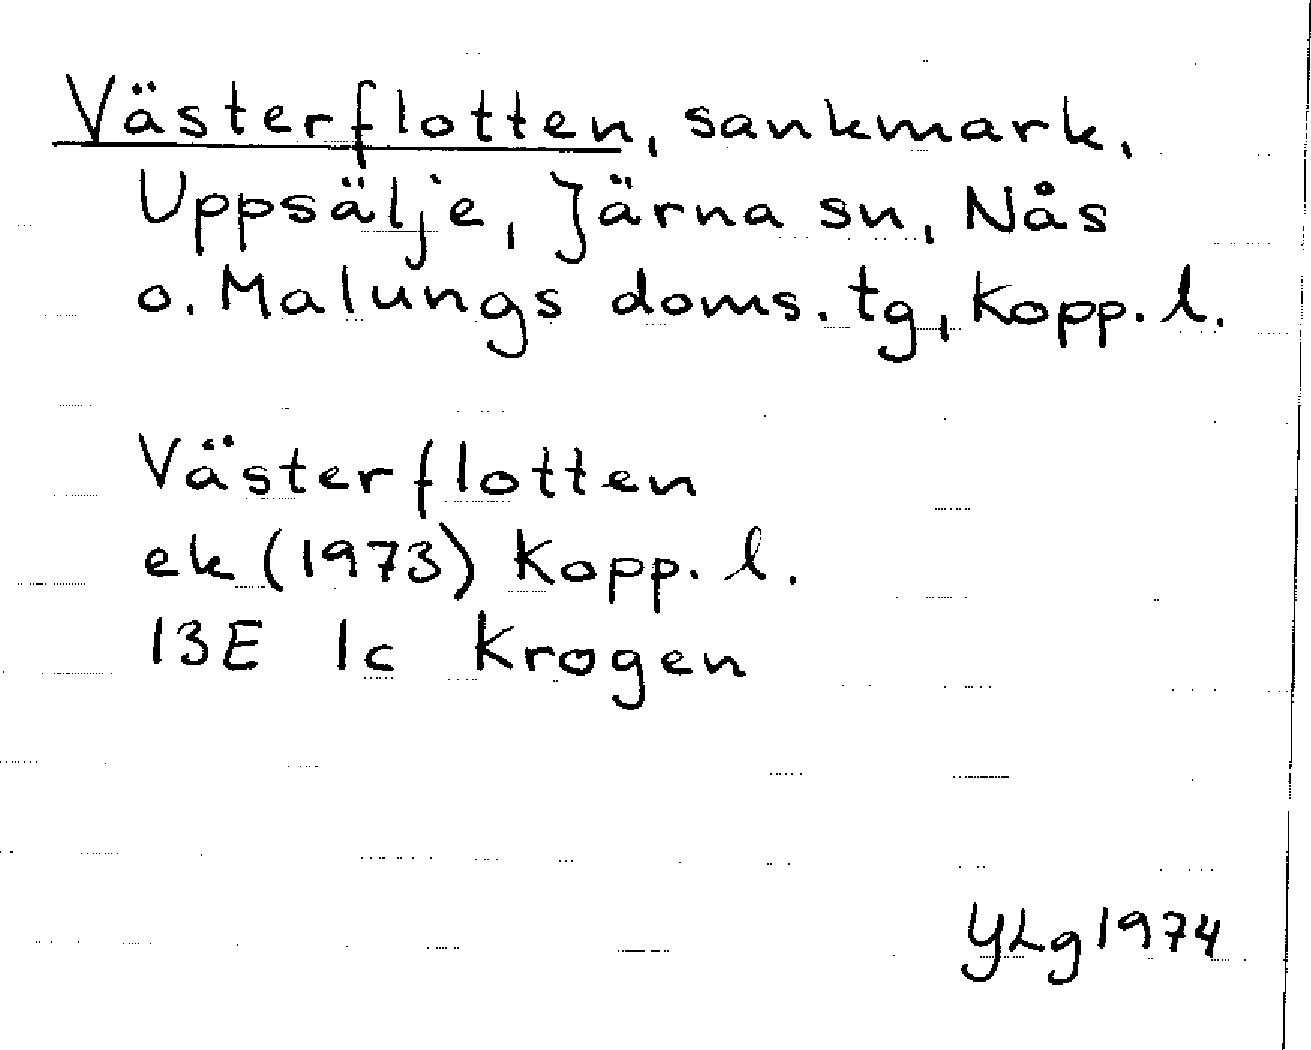 Västerflotten, sankmark,
Uppsälje, Järna sn, Nås
o. Malungs doms.tg, Kopp. l.
Västerflotten
ek (1973) Kopp. l.
13E 1c Krogen
YLg 1974